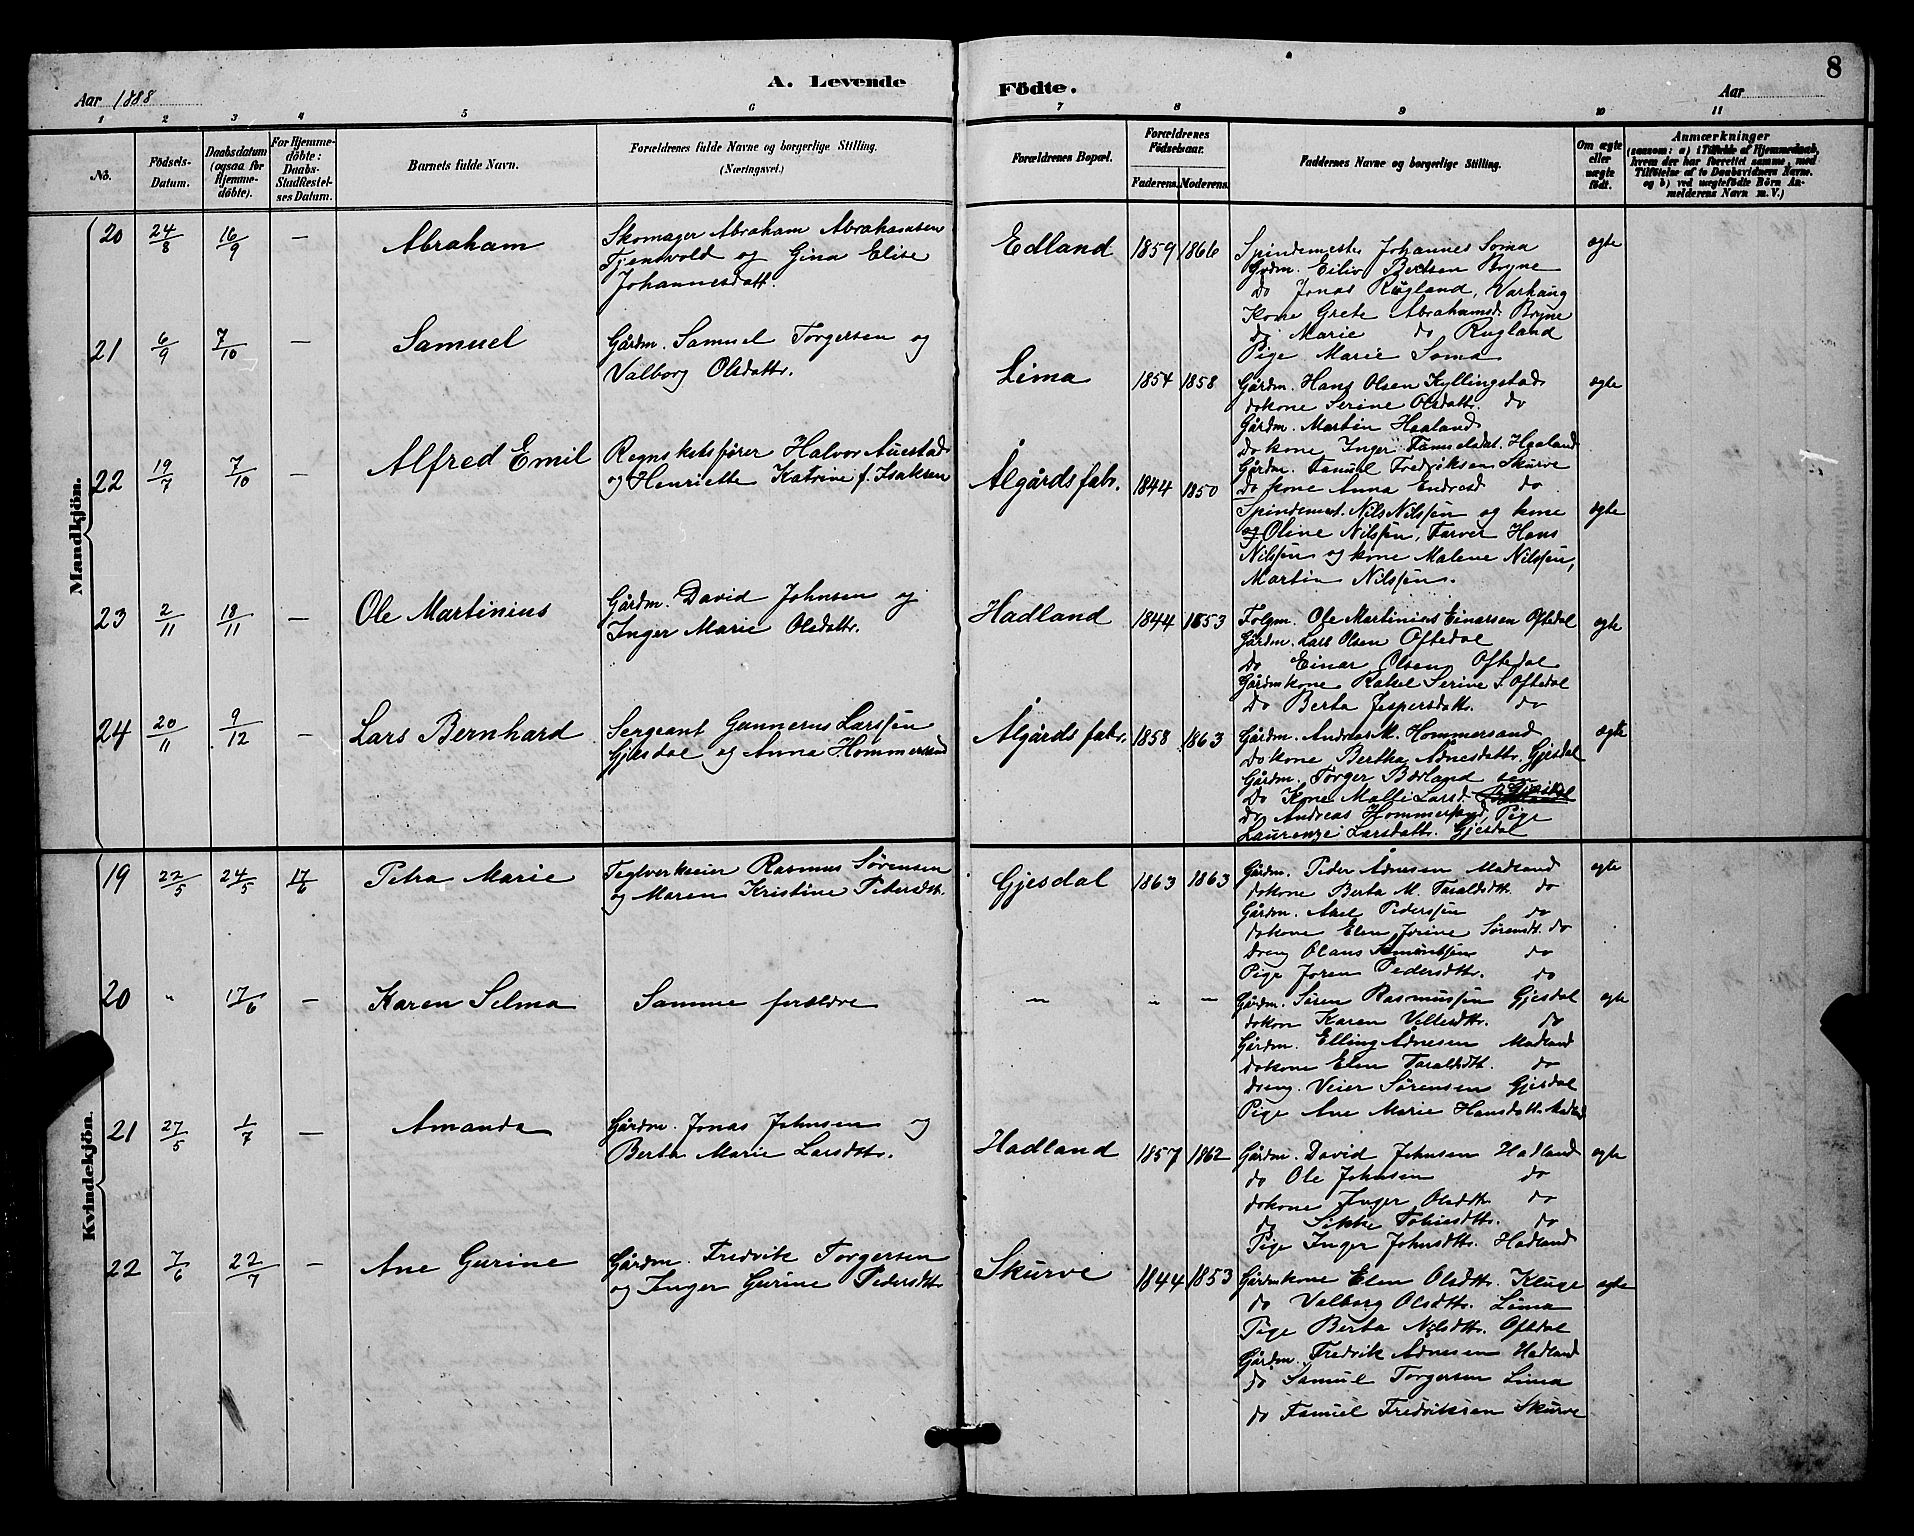 8
A. Levende Födte.
Aar 1888
Aar
1 2 3 4 5 6 7 8 9 10 11
No.
Födsels-Datum.
Daabsdatum (ogsaa for Hjemme-döbte).
For Hjemme-döbte: Daabs-Stadfæstelses Datum.
Barnets fulde Navn.
Forældrenes fulde Navne og borgerlige Stilling. (Næringsvei.)
Forældrenes Bopæl.
Forældrenes Födselsaar.
Faderens. Moderens.
Faddernes Navne og borgerlige Stilling.
Om ægte eller uægte født.
Anmærkninger
(saasom: a) i Tilfælde af Hjemmedaab,
hvem der har forrettet samme, med
Tilföielse af to Daabsvidners Navne.
og b) ved uægtefödte Börn An-
melderens Navn m. V.)
Mandkjön.
20 24/8 16/9 — Abraham
Skomager Abraham Abrahamsen
Tjensvold og Gina Elise
Johannesdatt.
Edland 1859 1866
Spindemester Johannes Soma
Grdm. Eiliv Bertsen Bryne
do Jonas Rugland, Varhaug
Kone Grete Abrahamsd. Bryne
do Marie do Rugland
Pige Marie Soma
ægte
21 6/9 7/10 — Samuel
Gårdm. Samuel Torgersen og
Valborg Olsdattr.
Lima 1854 1858
Gårdm. Hans Olsen Kyllingstad
do kone Serine Olsdattr. do
Gårdm. Martin Haaland
Do kone Inger Haaland
Gårdm. Samuel Fredriksen Skurve
Do kone Anna Endresd do
ægte
22 19/7 7/10 — Alfred Emil
Regnskabsfører Halvor Auestad
og Henriette Katrine f. Isaksen
Ålgårds fabr. 1844 1850
Spindemest. Nils Nilssen og kone
og Oline Nilssen, Farver Hans
Nilssen og kone Malene Nilssen,
Martin Nilssen.
ægte
23 2/11 18/11 — Ole Martinius
Gårdm. David Johnsen og
Inger Marie Olsdattr.
Hadland 1844 1853
Folgm. Ole Martinius Einarsen Oftedal
Gårdm. Lars Olsen Oftedal
Do Einar Olsen Oftedal
Gårdmkone Rakel Serine S. Oftedal
Do Berta Jespersdattr. do
ægte
24 20/11 9/12 — Lars Bernhard
Sergeant Gunnerus Larssen
Gjesdal og Anna Hommersand
Ålgårds fabr. 1858 1863
Gårdm. Andreas M. Hommersand
do kone Bertha Adnesdattr. Gjesdal
Gårdm. Torger Bærland
Do Kone Malli Larsd. Gjesdal
do Andreas Hommersand, Pige
Laurenze Larsdattr. Gjesdal
ægte
Kvindekjön.
19 22/5 24/5 17/6 Petra Marie
Teglverkeier Rasmus Sørensen
og Maren Kristine Pedersdtt.
Gjesdal 1863 1863
Gårdm. Peder Adnesen Madland
do kone Berta M. Taraldsdtt. do
Gårdm. Axel Pederssen do
do kone Elen Jorine Sørensdt. do
dreng Olaus Simonssen do
Pige Joren Pedersdttr. do
ægte
20 " 17/6 — Karen Selma
Samme forældre
— — —
Gårdm. Søren Rasmussen Gjesdal
do kone Karen Vellesdttr. do
Gårdm. Elling Adnesen Madland
do kone Elen Taraldsdtt. do
dreng. Veier Sørensen Gjesdal
Pige Ane Marie Hansdattr. Madland
ægte
21 27/5 1/7 — Amanda
Gårdm. Jonas Johnsen og
Berta Marie Larsdttr.
Hadland 1857 1862
Gårdm. David Johnsen Hadland
do Ole Johnsen do
do kone Inger Olsdttr. do
do Sikke Tobiasdttr. do
Pige Inger Johnsdttr. Hadland
ægte
22 7/6 22/7 — Ane Gurine
Gårdm. Fredrik Torgersen
og Inger Gurine Pedersdttr.
Skurve 1844 1853
Gårdmkone Elen Olsdttr. Kluge
do Valborg Olsdttr. Lima
Pige Berta Nilsdttr. Oftedal
Gårdm. Fredrik Adnesen Hadland
do Samuel Torgersen Lima
do Samuel Fredriksen Skurve
ægte